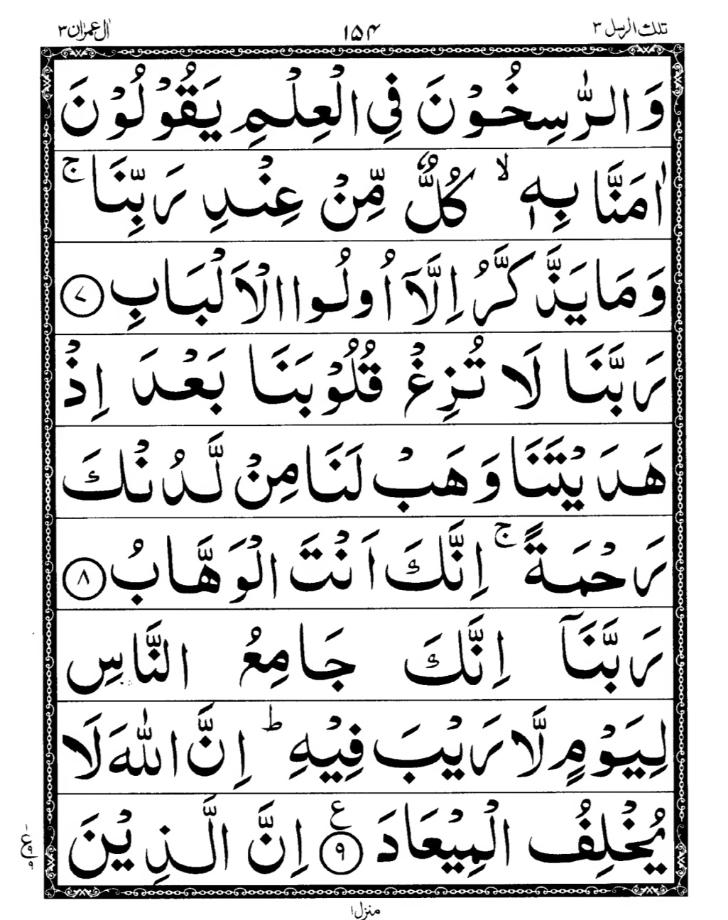 تلك الرسل ٣ ١٥٤ اٰل عمرٰن ٣
وَالرّٰسِخُوْنَ فِي الْعِلْمِ يَقُوْلُوْنَ
اٰمَنَّا بِهٖ ۙ كُلٌّ مِّنْ عِنْدِ رَبِّنَا ۚ
وَمَا يَذَّكَّرُ اِلَّآ اُولُوا الْاَلْبَابِ ۷
رَبَّنَا لَا تُزِغْ قُلُوْبَنَا بَعْدَ اِذْ
هَدَيْتَنَا وَهَبْ لَنَا مِنْ لَّدُنْكَ
رَحْمَةً ۚ اِنَّكَ اَنْتَ الْوَهَّابُ ۸
رَبَّنَآ اِنَّكَ جَامِعُ النَّاسِ
لِيَوْمٍ لَّا رَيْبَ فِيْهِ ؕ اِنَّ اللّٰهَ لَا
يُخْلِفُ الْمِيْعَادَ ۹ ع اِنَّ الَّذِيْنَ
منزل ١